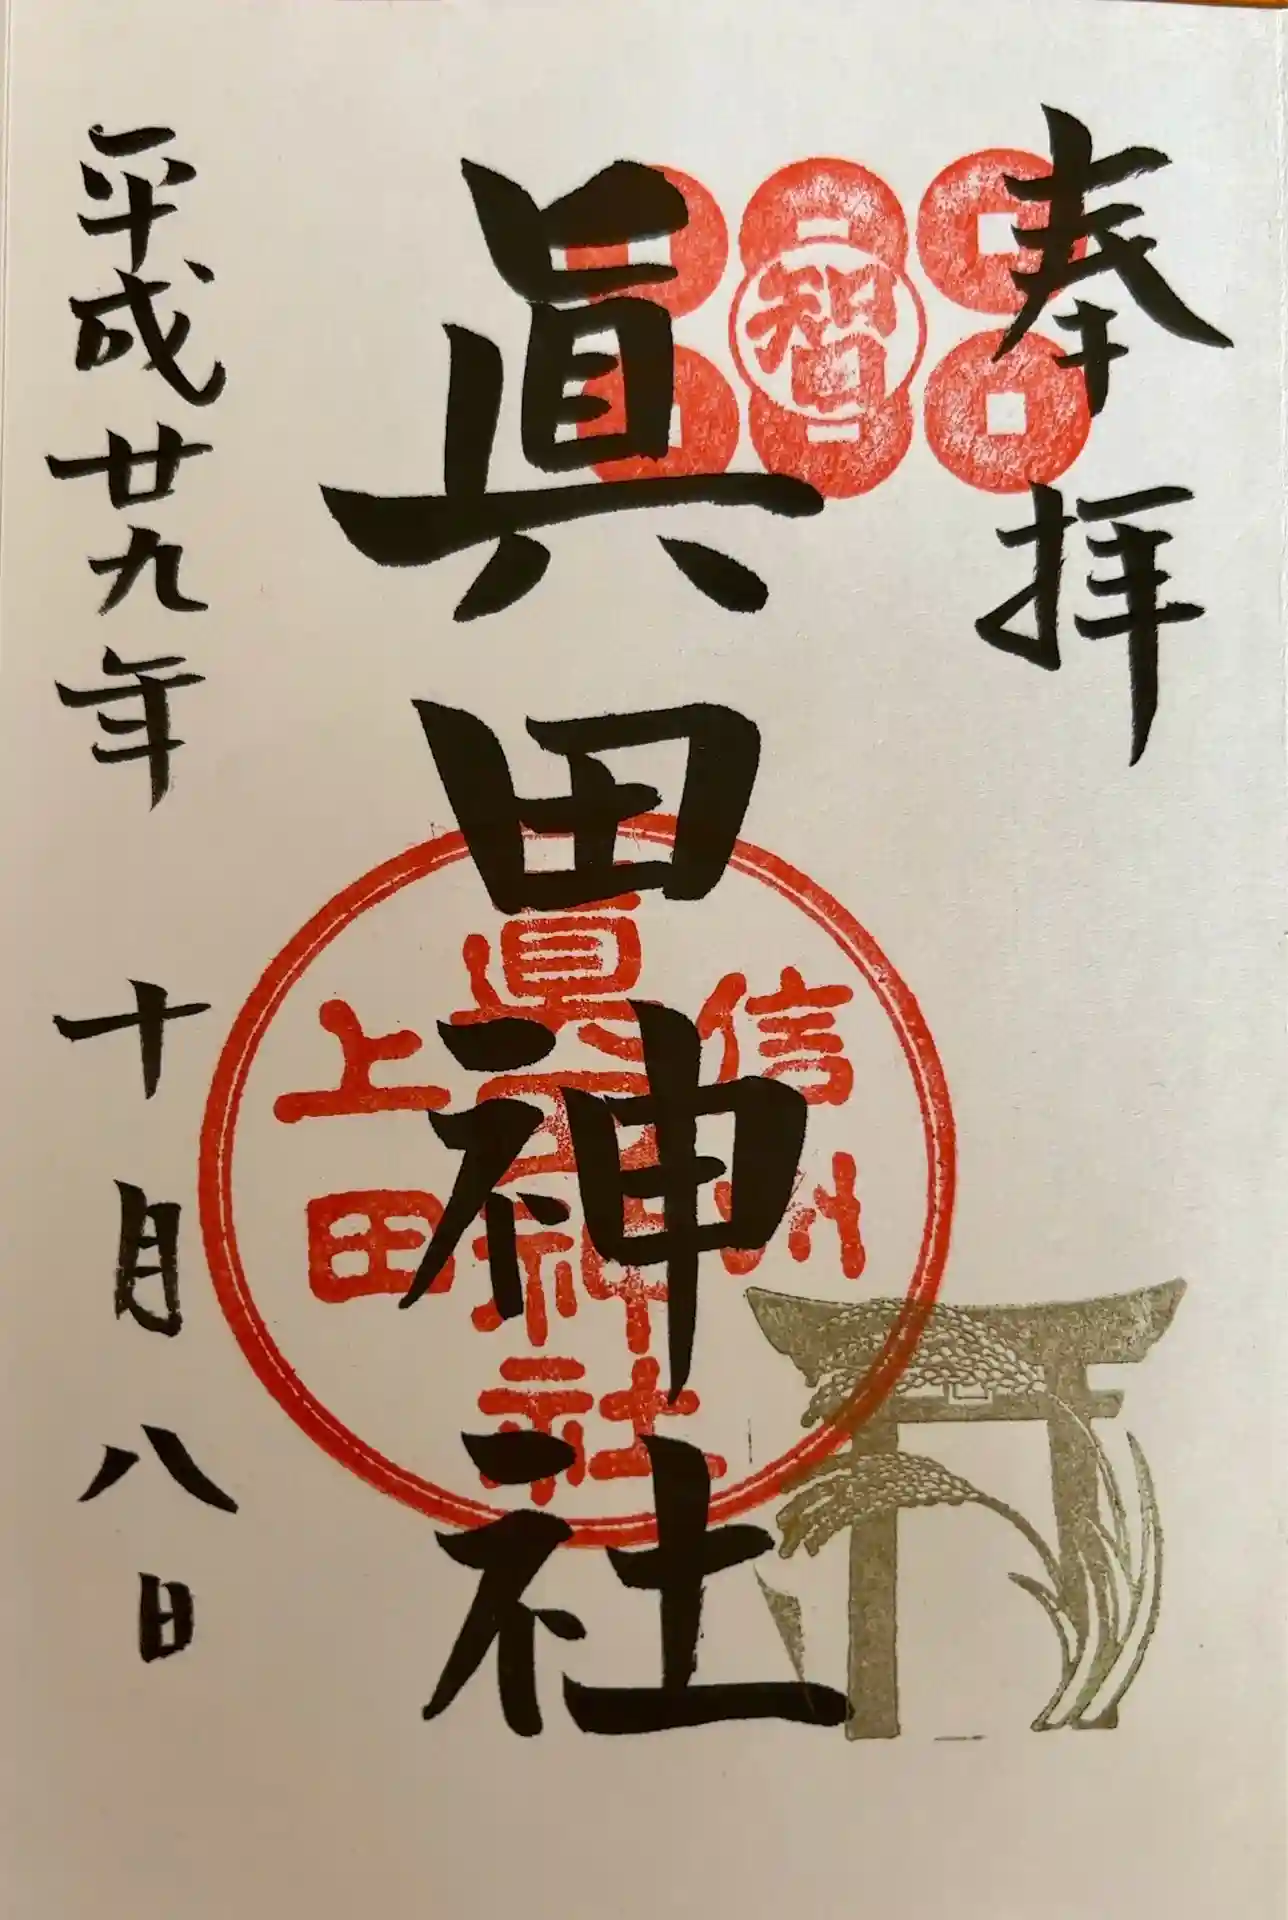 奉拝
智
眞田神社
信州
眞田神社
上田
平成廿九年十月八日